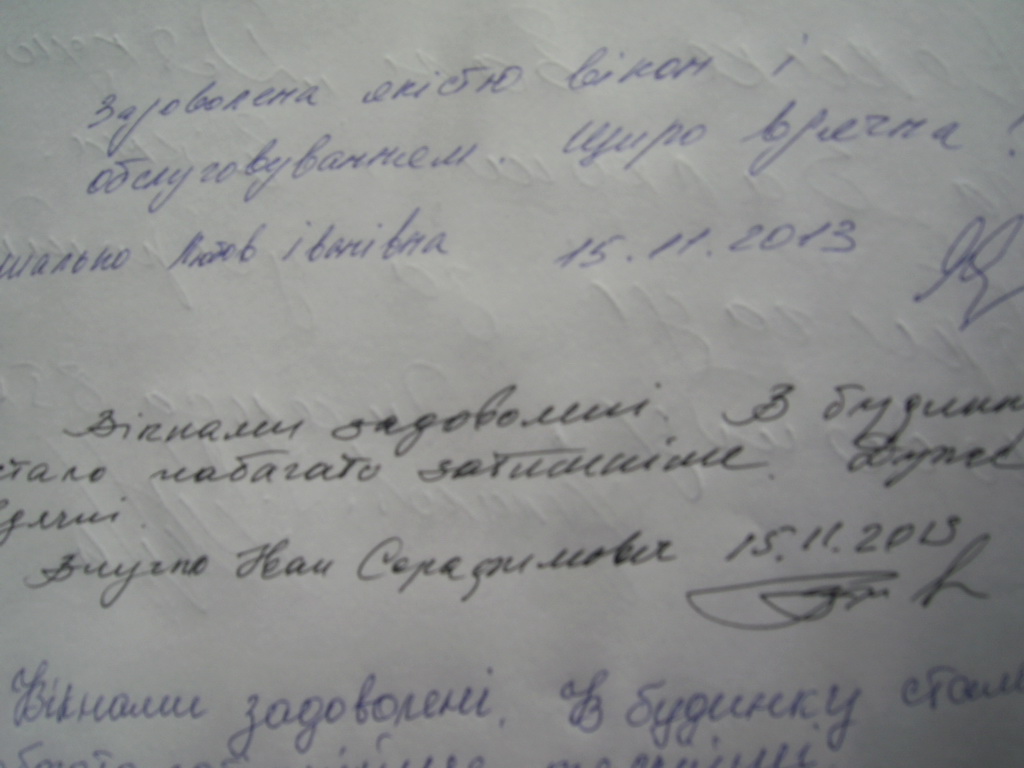 Задоволена якістю вікон і
обслуговуванням. Щиро вдячна!
Любов Іванівна 15.11.2013
Вікнами задоволені. В будинку
стало набагато затишніше. Дуже
вдячні.
Іван Серафимович 15.11.2013
Вікнами задоволені. В будинку стало